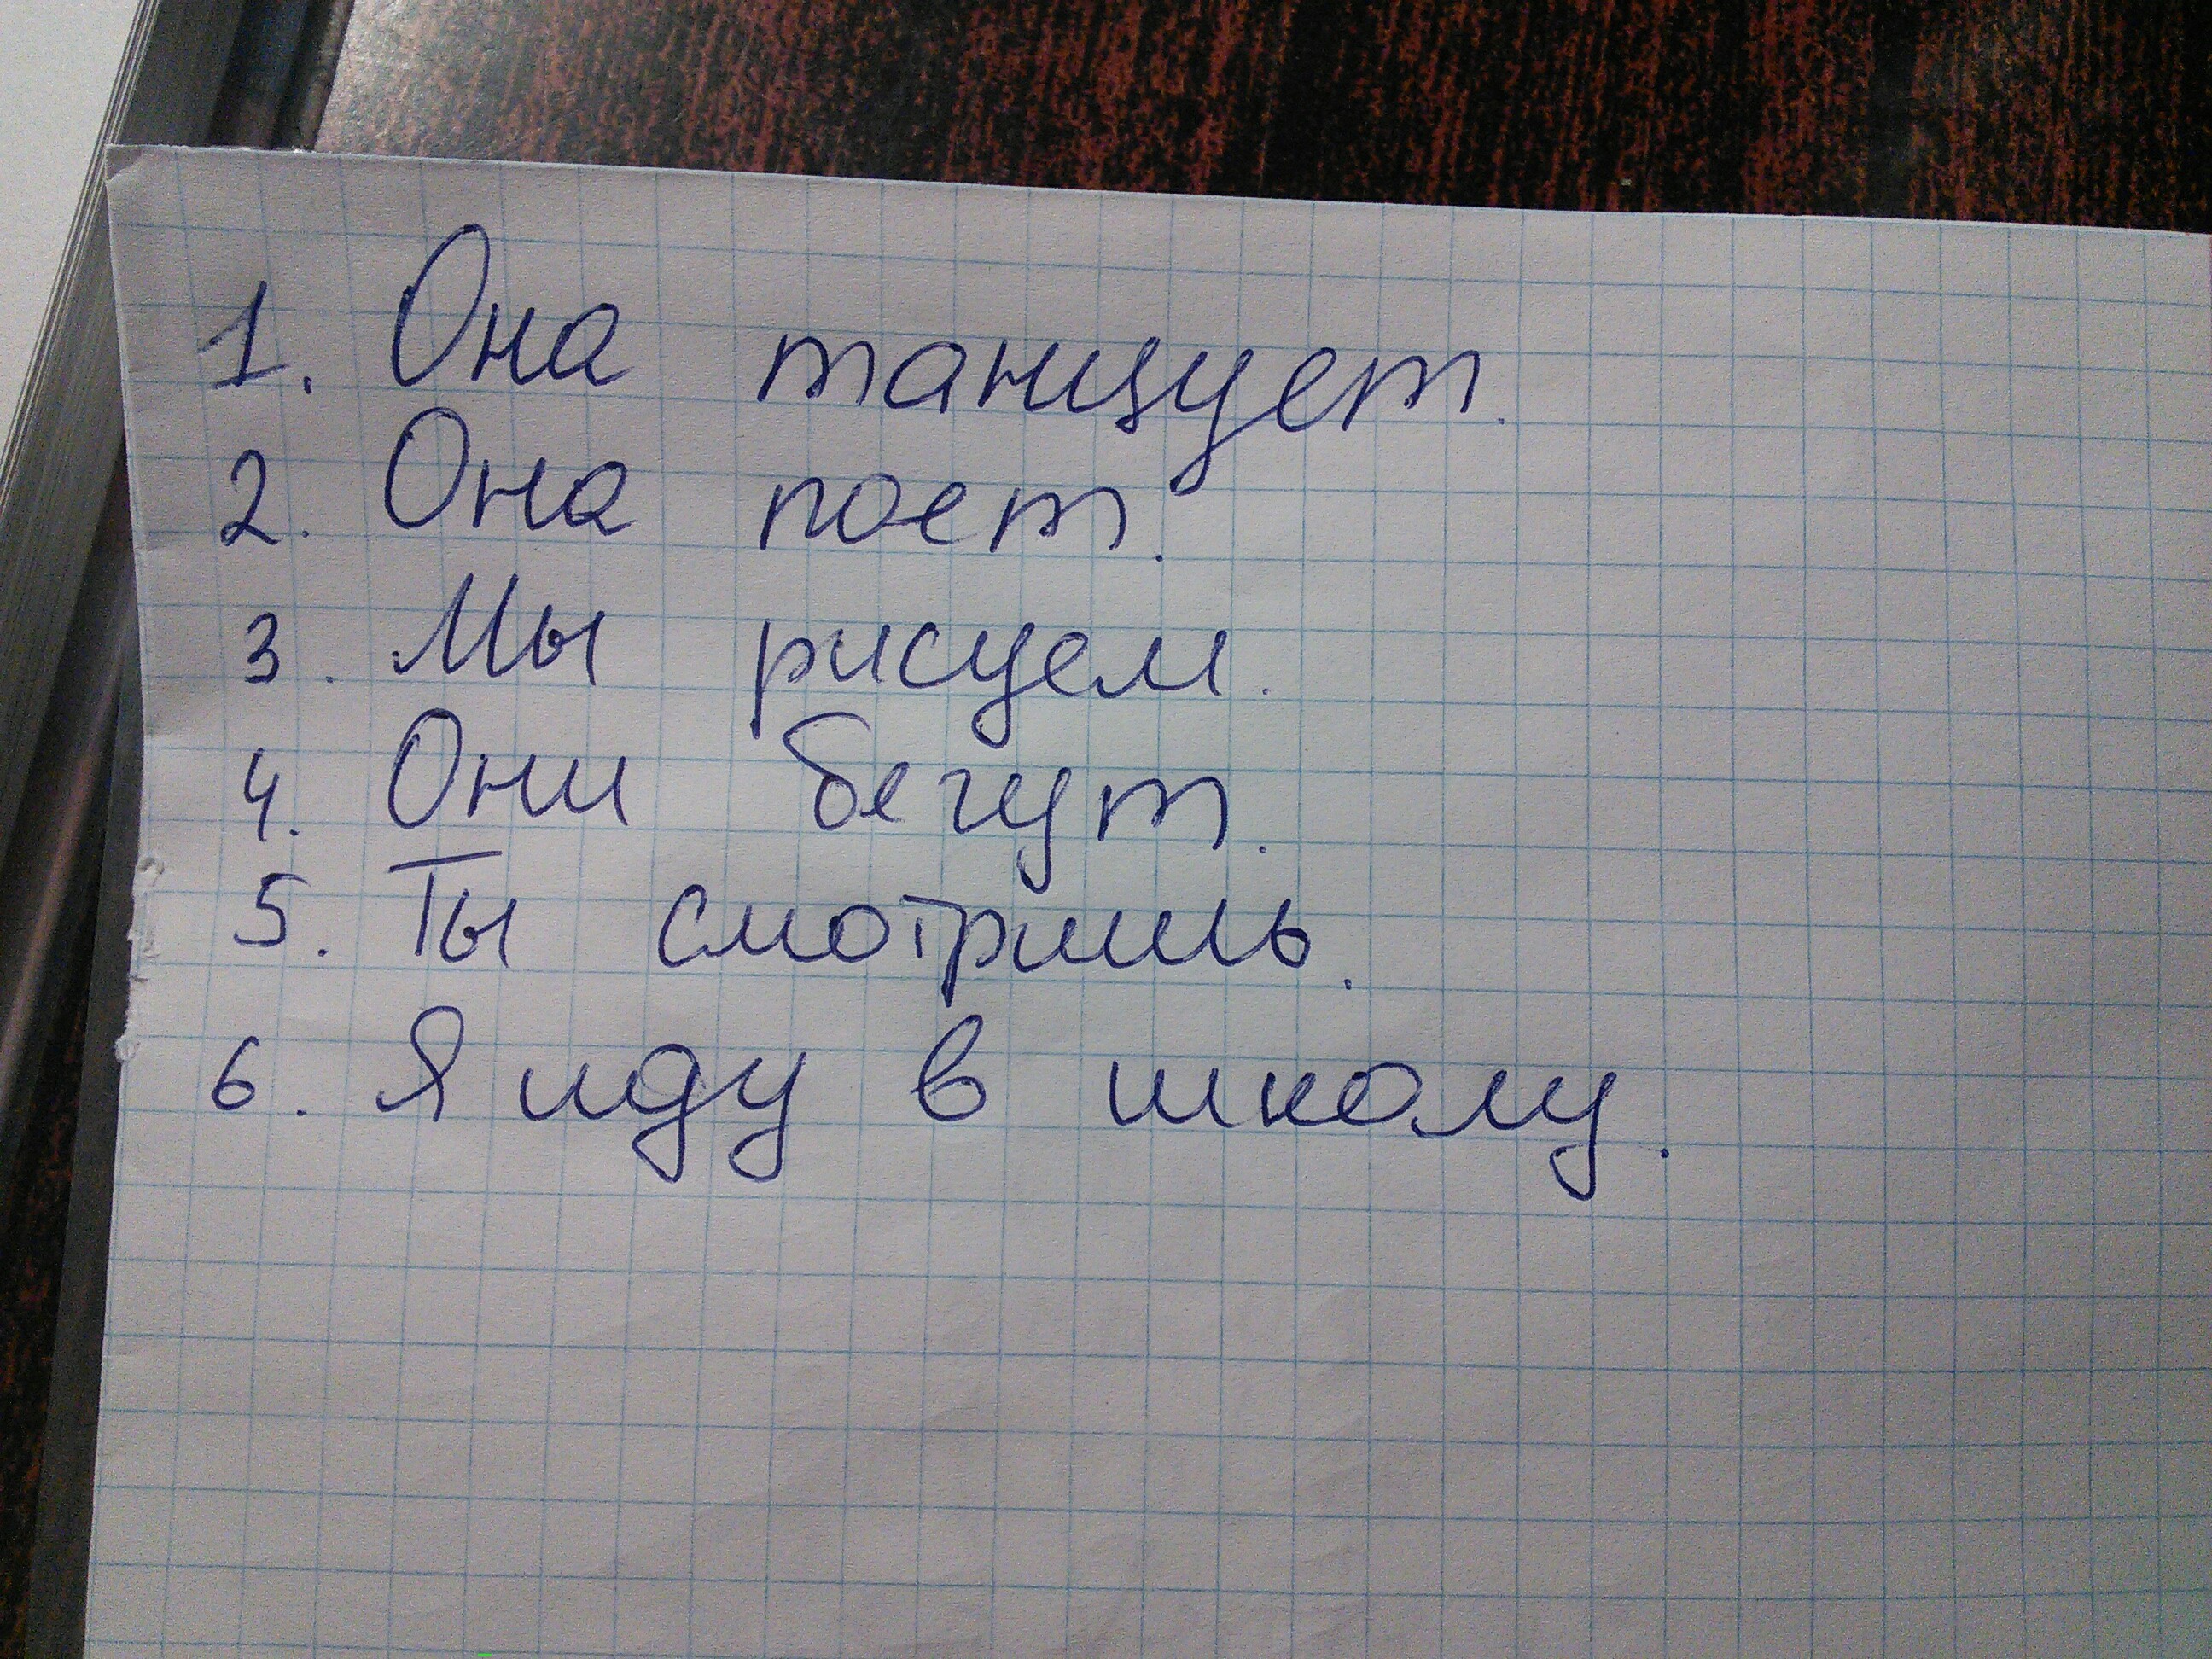 1. Она танцует.
2. Она поет.
3. Мы рисуем.
4. Они бегут.
5. Ты смотришь.
6. Я иду в школу.